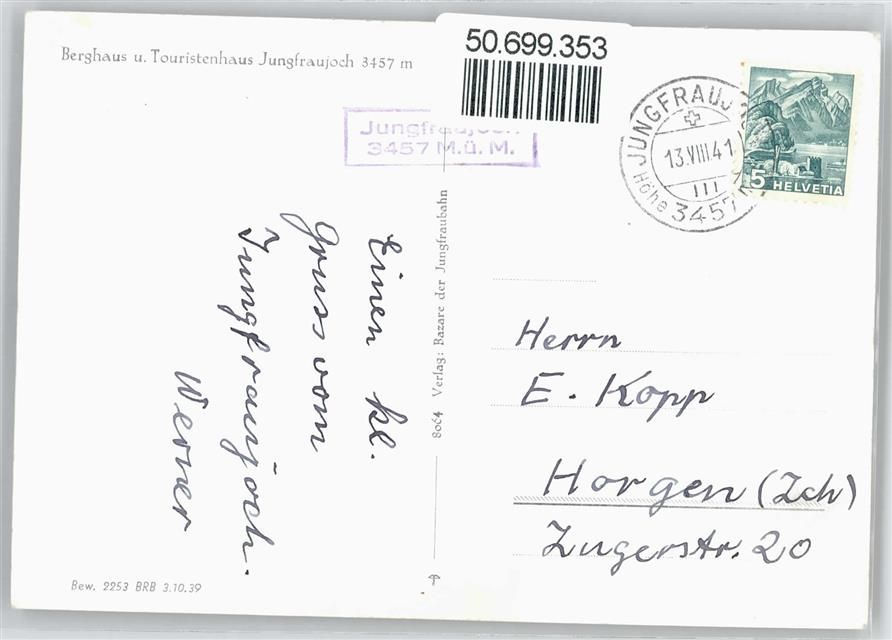 Berghaus u. Touristenhaus Jungfraujoch 3457 m
50.699.353
Jungfraujoch
3457 M.ü. M.
JUNGFRAUJ
13.VIII.41
III
Höhe 3457
5 HELVETIA
Einen kl.
Gruss vom
Jungfraujoch.
Werner
8064 Verlag: Bazare der Jungfraubahn
Herrn
E. Kopp
Horgen (Zch)
Zugerstr. 20
Bew. 2253 BRB 3.10.39